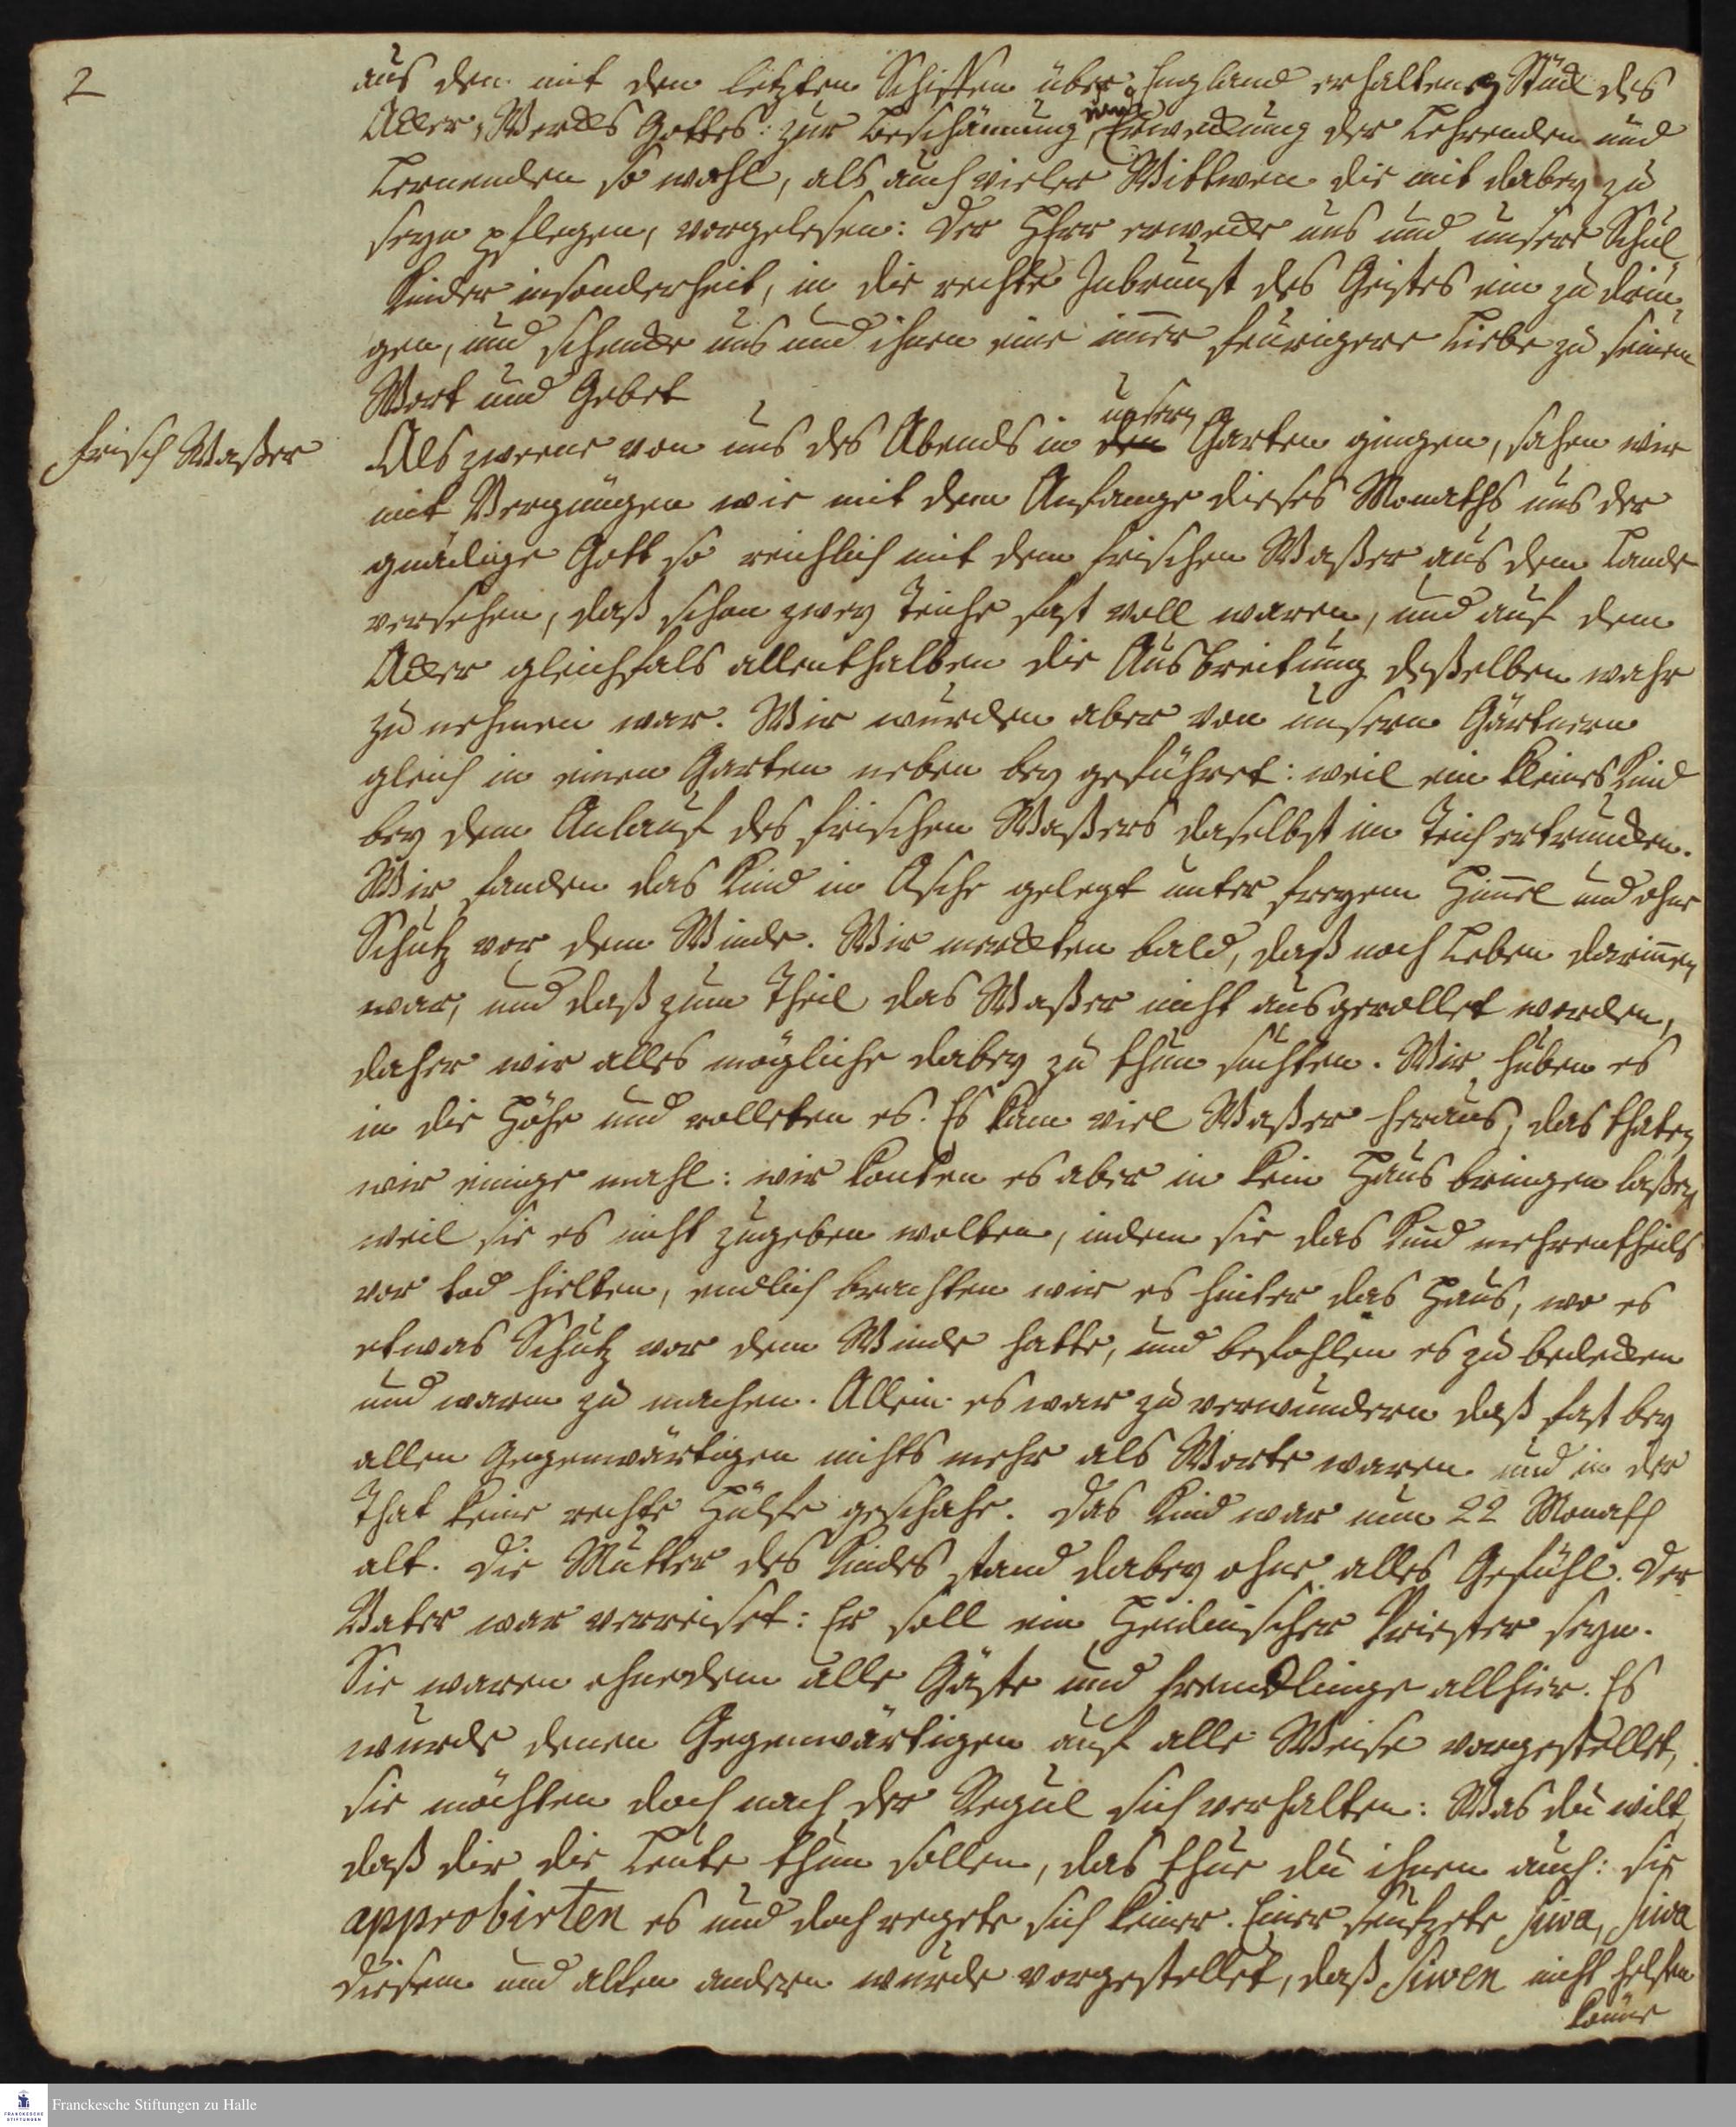 2
aus den mit den letzten Schiffen über England erhaltenen Stück des
Acker, Wercks Gottes: zur Beschämung und Erweckung der Lehrenden und
Lernenden so wohl, als auch vieler Wittwen die mit dabey zu
seyn pflegen, vorgelesen: Der Herr erwecke uns und unsere Schul
Kinder insonderheit, in die rechte Inbrunst des Geistes ein zu drin,
gen, und schencke uns und ihnen eine im̅er feurigere Liebe zu seinem
Wort und Gebet
frisch Waßer
Als zweene von uns des Abends in unsern Garten gingen, sahen wir
mit Vergnügen wie mit dem Anfange dieses Monaths uns der
gnädige Gott so reichlich mit dem frischen Waßer aus dem Lande
versehen, daß schon zwey Teiche fast voll waren, und auf dem
Acker gleichfals allenthalben die Ausbreitung deßelben wahr
zu nehmen war. Wir wurden aber von unsern Gärtnern
gleich in einen Garten neben bey geführet: weil ein kleines Kind
bey dem Anlauf des frischen Waßers daselbst im Teich ertruncken.
Wir fanden das Kind in Asche gelegt unter freyem Him̅el und ohne
Schutz vor dem Winde. Wir merckten bald, daß noch Leben darin̅en
war, und daß zum Theil das Waßer nicht ausgerollet worden,
daher wir alles mögliche dabey zu thun suchten. Wir huben es
in die Höhe und rolleten es. Es kam viel Waßer heraus, das thaten
wir einige mahl: wir konten es aber in kein Haus bringen laßen
weil sie es nicht zugeben wolten, indem sie das Kind mehrentheils
vor tod hielten, endlich brachten wir es hinter das Haus, wo es
etwas Schutz vor dem Winde hatte, und befohlen es zu bedecken
und warm zu machen. Allein es war zu verwundern daß fast bey
allen Gegenwärtigen nichts mehr als Worte waren und in der
That keine rechte Hülfe geschahe. Das Kind war nun 22 Monath
alt. Die Mutter des Kindes stand dabey ohne alles Gefühl. Der
Vater war verreiset: Er soll ein Heidnischer Priester seyn.
Sie waren ohnedem alle Gäste und Fremdlinge allhier. Es
wurde denen Gegenwärtigen auf alle Weise vorgestellet,
sie möchten doch nach der Regul sich verhalten: Was du wilt,
daß dir die Leute thun sollen, das thue du ihnen auch: sie
approbirten es und doch regete sich keiner. Einer seufzete Siwa, Siwa
diesem und allen andern wurde vorgestellet, daß Siwen nicht helfen
kön̅e
Franckesche Stiftungen zu Halle